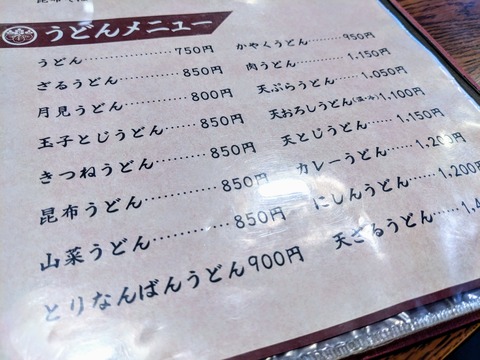 うどんメニュー
うどん……………750円
ざるうどん…………850円
月見うどん…………800円
玉子とじうどん……850円
きつねうどん………850円
昆布うどん…………850円
山菜うどん…………850円
とりなんばんうどん900円
かやくうどん………950円
肉うどん……………1,150円
天ぷらうどん………1,050円
天おろしうどん(温・冷)1,100円
天とじうどん………1,150円
カレーうどん………1,200円
にしんうどん………1,200円
天ざるうどん……